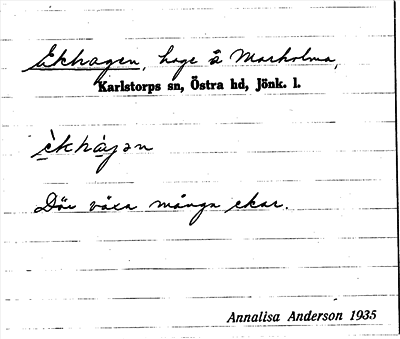 Ekhagen, hage å Marholma,
Karlstorps sn, Östra hd, Jönk. l.
èkhàgən
Där växa många ekar.
Annalisa Anderson 1935